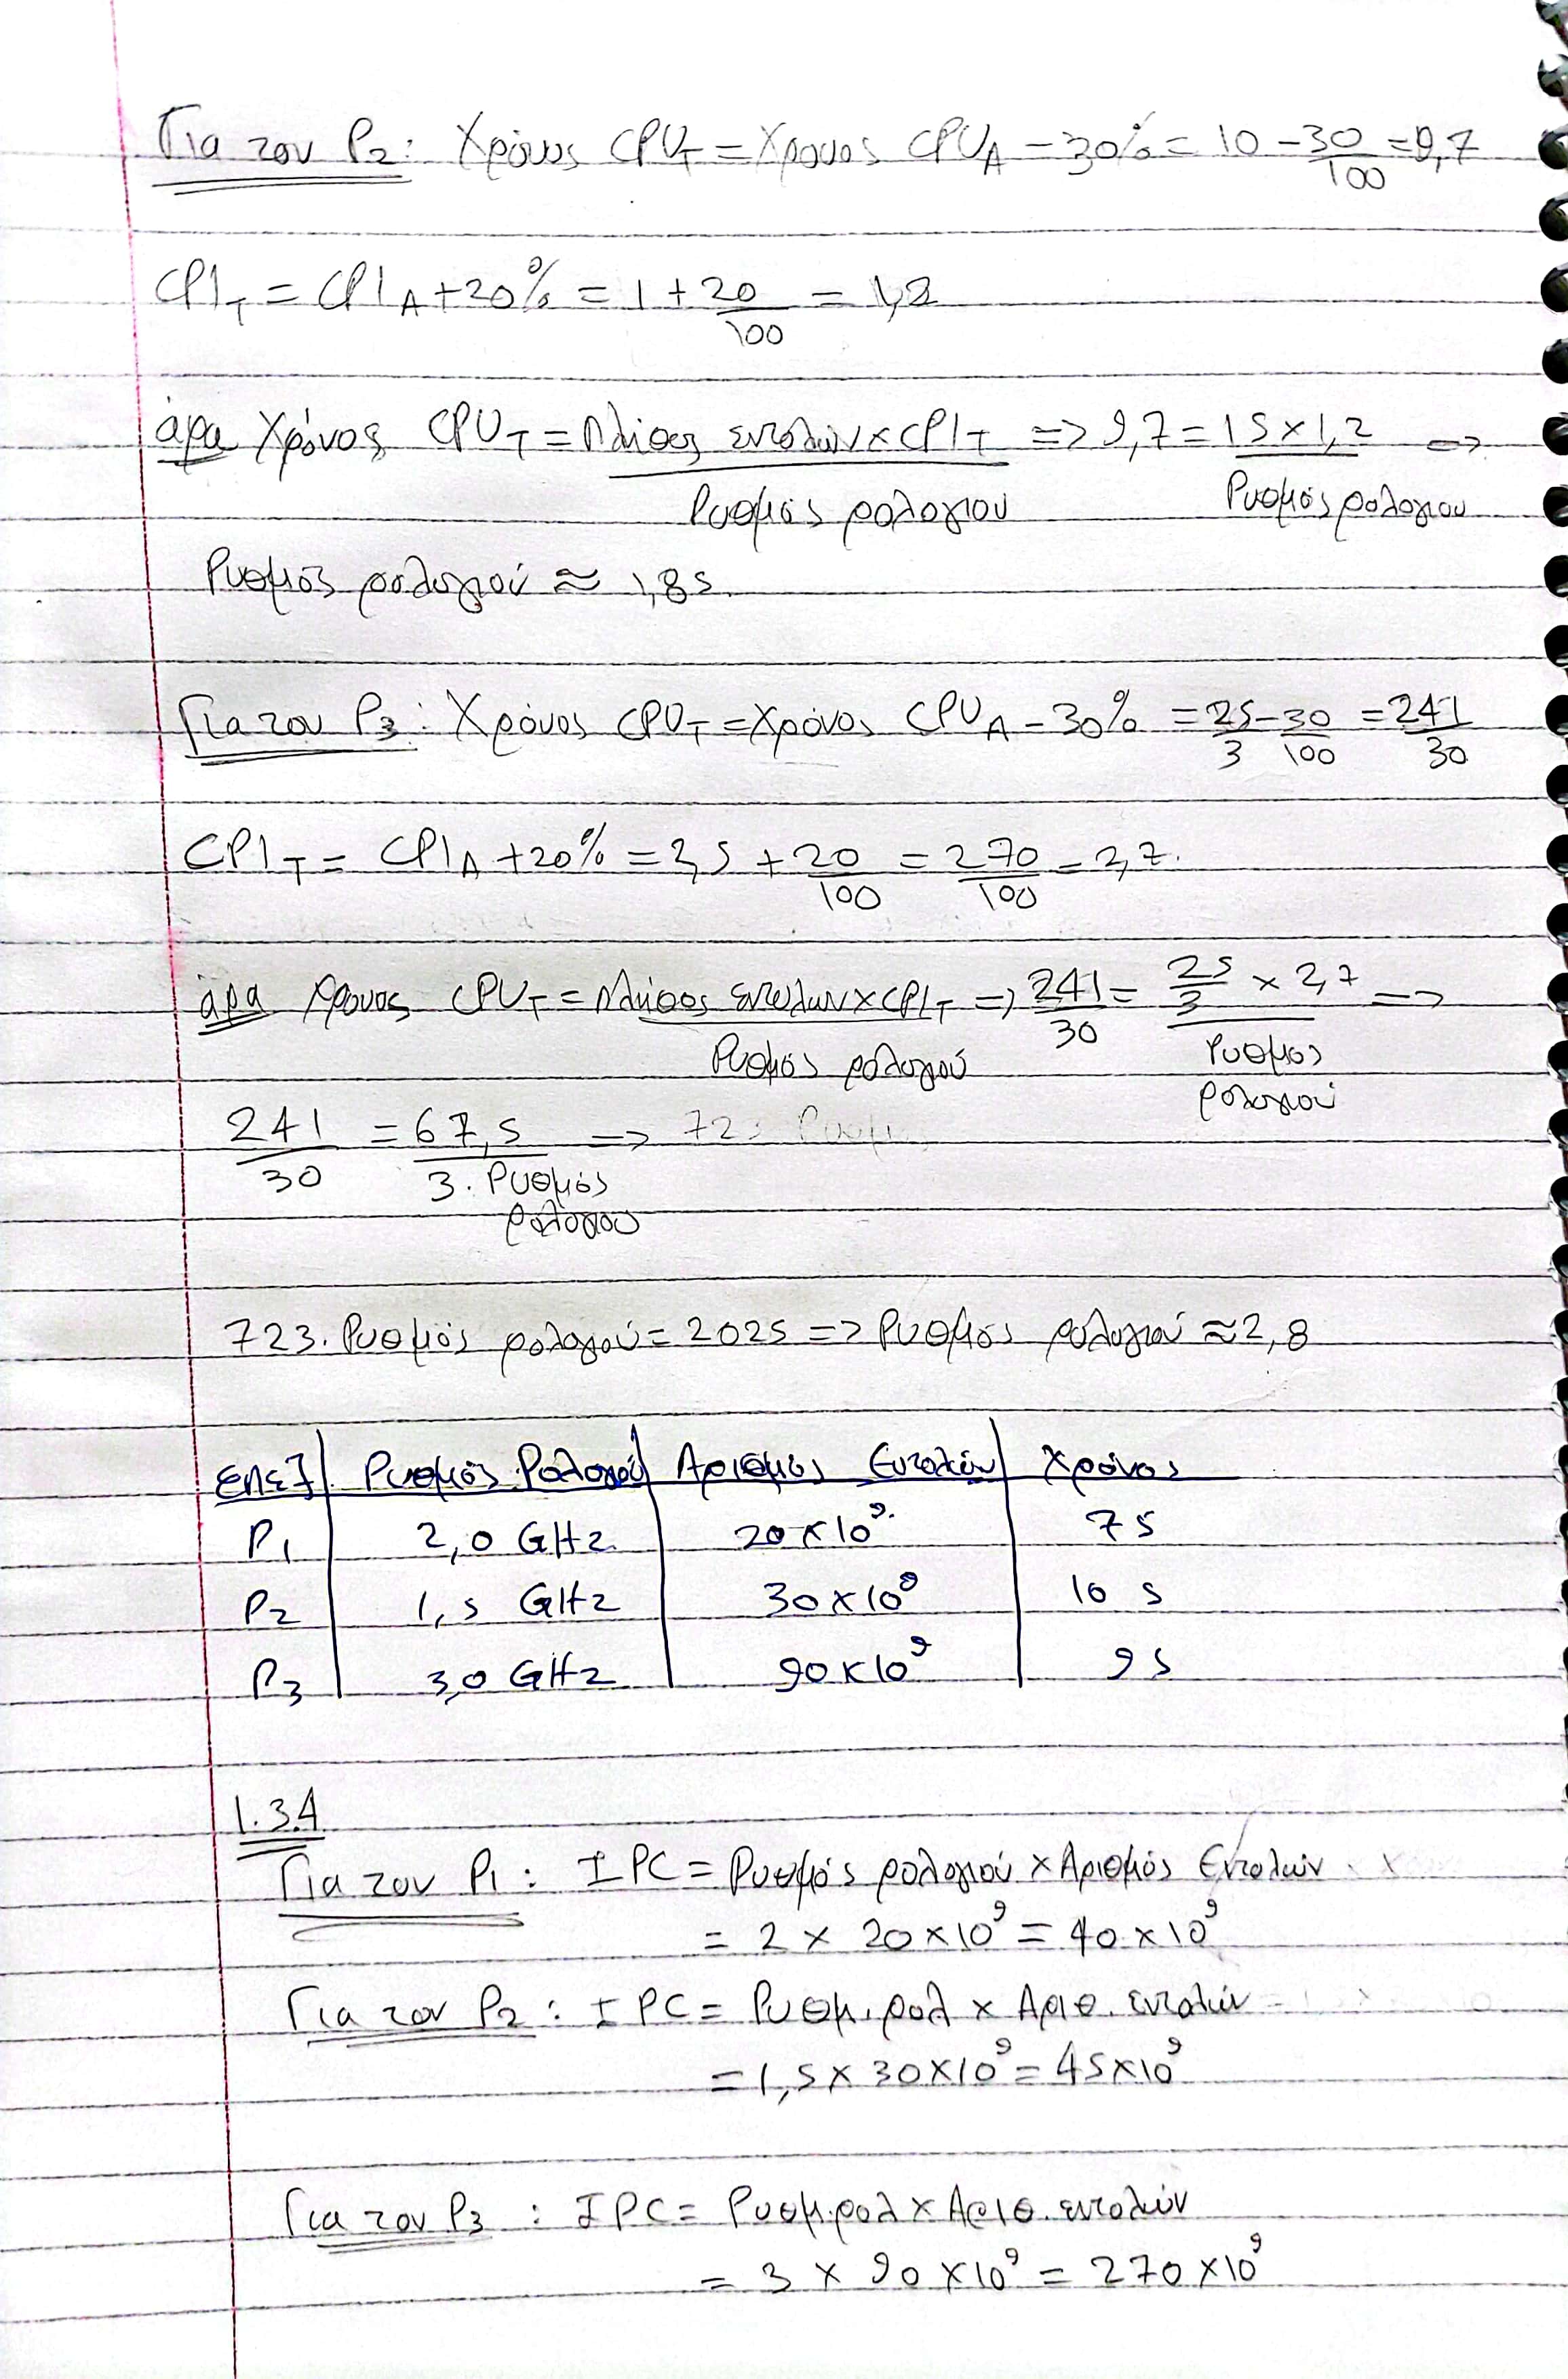 Για τον P2: Χρόνος CPUT = Χρονος CPUA - 30% = 10 - 30/100 = 9,7
CPIT = CPIA + 20% = 1 + 20/100 = 1,2
άρα Χρόνος CPUT = Πλήθος εντολών x CPIT / Ρυθμός ρολογιού => 9,7 = 15 x 1,2 / Ρυθμός ρολογιου =>
Ρυθμός ρολογιού ≈ 1,85
Για τον P3: Χρόνος CPUT = Χρόνος CPUA - 30% = 25/3 - 30/100 = 241/30
CPIT = CPIA + 20% = 2,5 + 20/100 = 270/100 = 2,7.
άρα Χρονος CPUT = Πλήθος εντολων x CPIT / Ρυθμός ρολογιού => 241/30 = 25/3 x 2,7 / Ρυθμος ρολογιού =>
241/30 = 67,5 / 3. Ρυθμός ρολογιου => 723 Ρυθμ
723. Ρυθμός ρολογιού = 2025 => Ρυθμός ρολογιού ≈ 2,8
επεξ Ρυθμός Ρολογιού Αριθμός Εντολών Χρόνος
P1 2,0 GHz 20x10⁹ 7s
P2 1,5 GHz 30x10⁹ 10 s
P3 3,0 GHz 90x10⁹ 9s
1.3.4
Για τον P1: IPC = Ρυθμός ρολογιού x Αριθμός Εντολών x
= 2 x 20 x 10⁹ = 40 x 10⁹
Για τον P2: IPC = Ρυθμ. ρολ x Αριθ. εντολών
= 1,5 x 30 x 10⁹ = 45x10⁹
Για τον P3: IPC = Ρυθμ. ρολ x Αριθ. εντολών
= 3 x 90 x 10⁹ = 270 x 10⁹